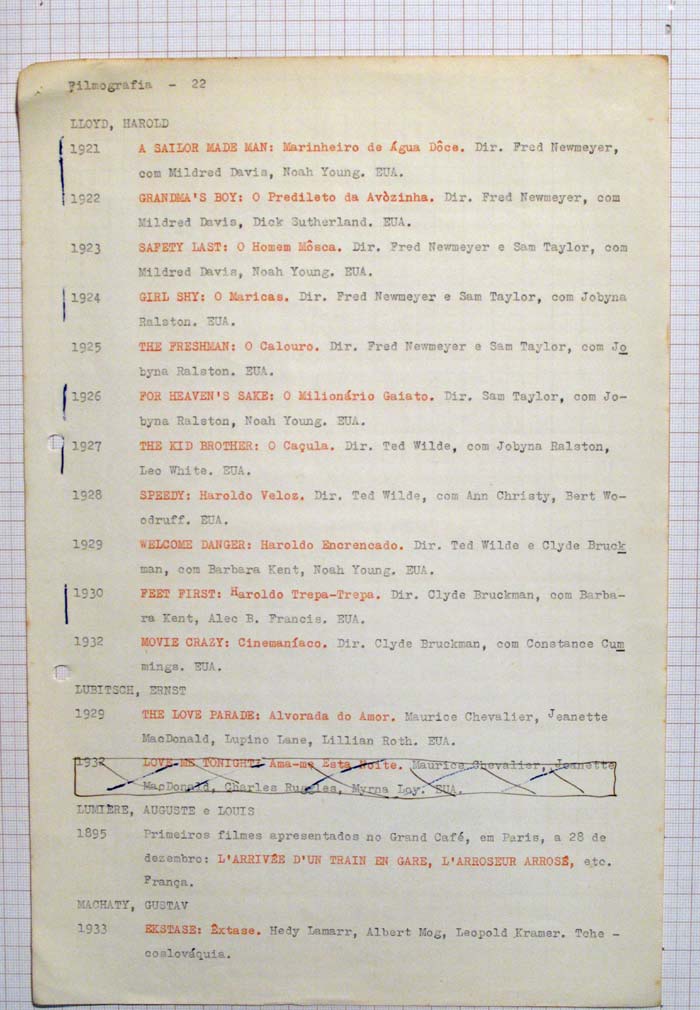 Filmografia - 22
LLOYD, HAROLD
1921 A SAILOR MADE MAN: Marinheiro de Água Dôce. Dir. Fred Newmeyer,
com Mildred Davis, Noah Young. EUA.
1922 GRANDMA'S BOY: O Predileto da Avòzinha. Dir. Fred Newmeyer, com
Mildred Davis, Dick Sutherland. EUA.
1923 SAFETY LAST: O Homem Môsca. Dir. Fred Newmeyer e Sam Taylor, com
Mildred Davis, Noah Young. EUA.
1924 GIRL SHY: O Maricas. Dir. Fred Newmeyer e Sam Taylor, com Jobyna
Ralston. EUA.
1925 THE FRESHMAN: O Calouro. Dir. Fred Newmeyer e Sam Taylor, com Jo
byna Ralston. EUA.
1926 FOR HEAVEN'S SAKE: O Milionário Gaiato. Dir. Sam Taylor, com Jo-
byna Ralston, Noah Young. EUA.
1927 THE KID BROTHER: O Caçula. Dir. Ted Wilde, com Jobyna Ralston,
Leo White. EUA.
1928 SPEEDY: Haroldo Veloz. Dir. Ted Wilde, com Ann Christy, Bert Wo-
odruff. EUA.
1929 WELCOME DANGER: Haroldo Encrencado. Dir. Ted Wilde e Clyde Bruck
man, com Barbara Kent, Noah Young. EUA.
1930 FEET FIRST: Haroldo Trepa-Trepa. Dir. Clyde Bruckman, com Barba-
ra Kent, Alec B. Francis. EUA.
1932 MOVIE CRAZY: Cinemaníaco. Dir. Clyde Bruckman, com Constance Cum
mings. EUA.
LUBITSCH, ERNST
1929 THE LOVE PARADE: Alvorada do Amor. Maurice Chevalier, Jeanette
MacDonald, Lupino Lane, Lillian Roth. EUA.
1932 LOVE ME TONIGHT: Ama-me Esta Noite. Maurice Chevalier, Jeanette
MacDonald, Charles Ruggles, Myrna Loy. EUA.
LUMIÈRE, AUGUSTE e LOUIS
1895 Primeiros filmes apresentados no Grand Café, em Paris, a 28 de
dezembro: L'ARRIVÉE D'UN TRAIN EN GARE, L'ARROSEUR ARROSÉ, etc.
França.
MACHATY, GUSTAV
1933 EKSTASE: Êxtase. Hedy Lamarr, Albert Mog, Leopold Kramer. Tche -
coslováquia.